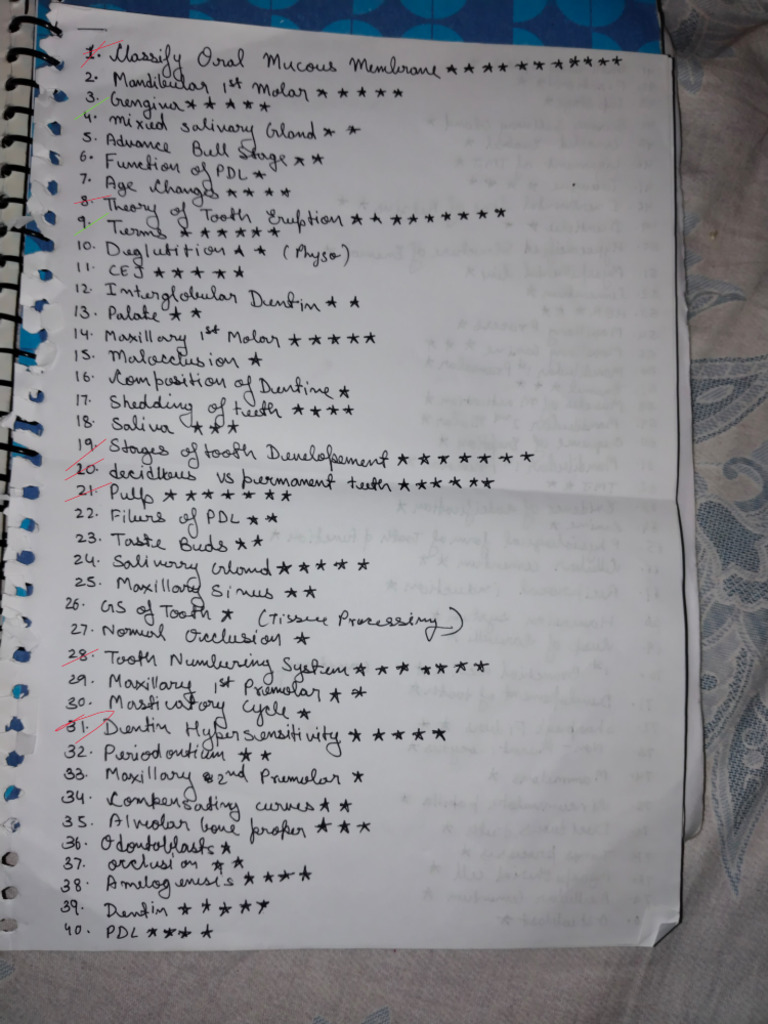 1. Classify Oral Mucous Membrane ★★★★★★★★★★★
2. Mandibular 1st Molar ★★★★★
3. Gengiva ★★★★★
4. mixed salivary Gland ★★
5. Advance Bell Stage ★★
6. Function of PDL ★
7. Age Changes ★★★★
8. Theory of Tooth Eruption ★★★★★★★★★
9. Terms ★★★★★★
10. Deglutition ★★ (Physo)
11. CEJ ★★★★★
12. Interglobular Dentin ★★
13. Palate ★★
14. Maxillary 1st Molar ★★★★★
15. Malocclusion ★
16. Composition of Dentine ★
17. Shedding of teeth ★★★★
18. Saliva ★★★
19. Stages of tooth Developement ★★★★★★★
20. deciduous vs permanent teeth ★★★★★★
21. Pulp ★★★★★★★
22. Fibers of PDL ★★
23. Taste Buds ★★
24. Salivary Gland ★★★★★
25. Maxillary Sinus ★★
26. GS of Tooth ★ (Tissue Processing)
27. Normal Occlusion ★
28. Tooth Numbering System ★★★★★★★
29. Maxillary 1st Premolar ★★
30. Masticatory Cycle ★
31. Dentin Hypersensitivity ★★★★★
32. Periodontium ★★
33. Maxillary 2nd Premolar ★
34. Compensating curves ★★
35. Alveolar bone proper ★★★
36. Odontoblasts ★
37. occlusion ★★
38. Amelogenesis ★★★★
39. Dentin ★★★★★
40. PDL ★★★★